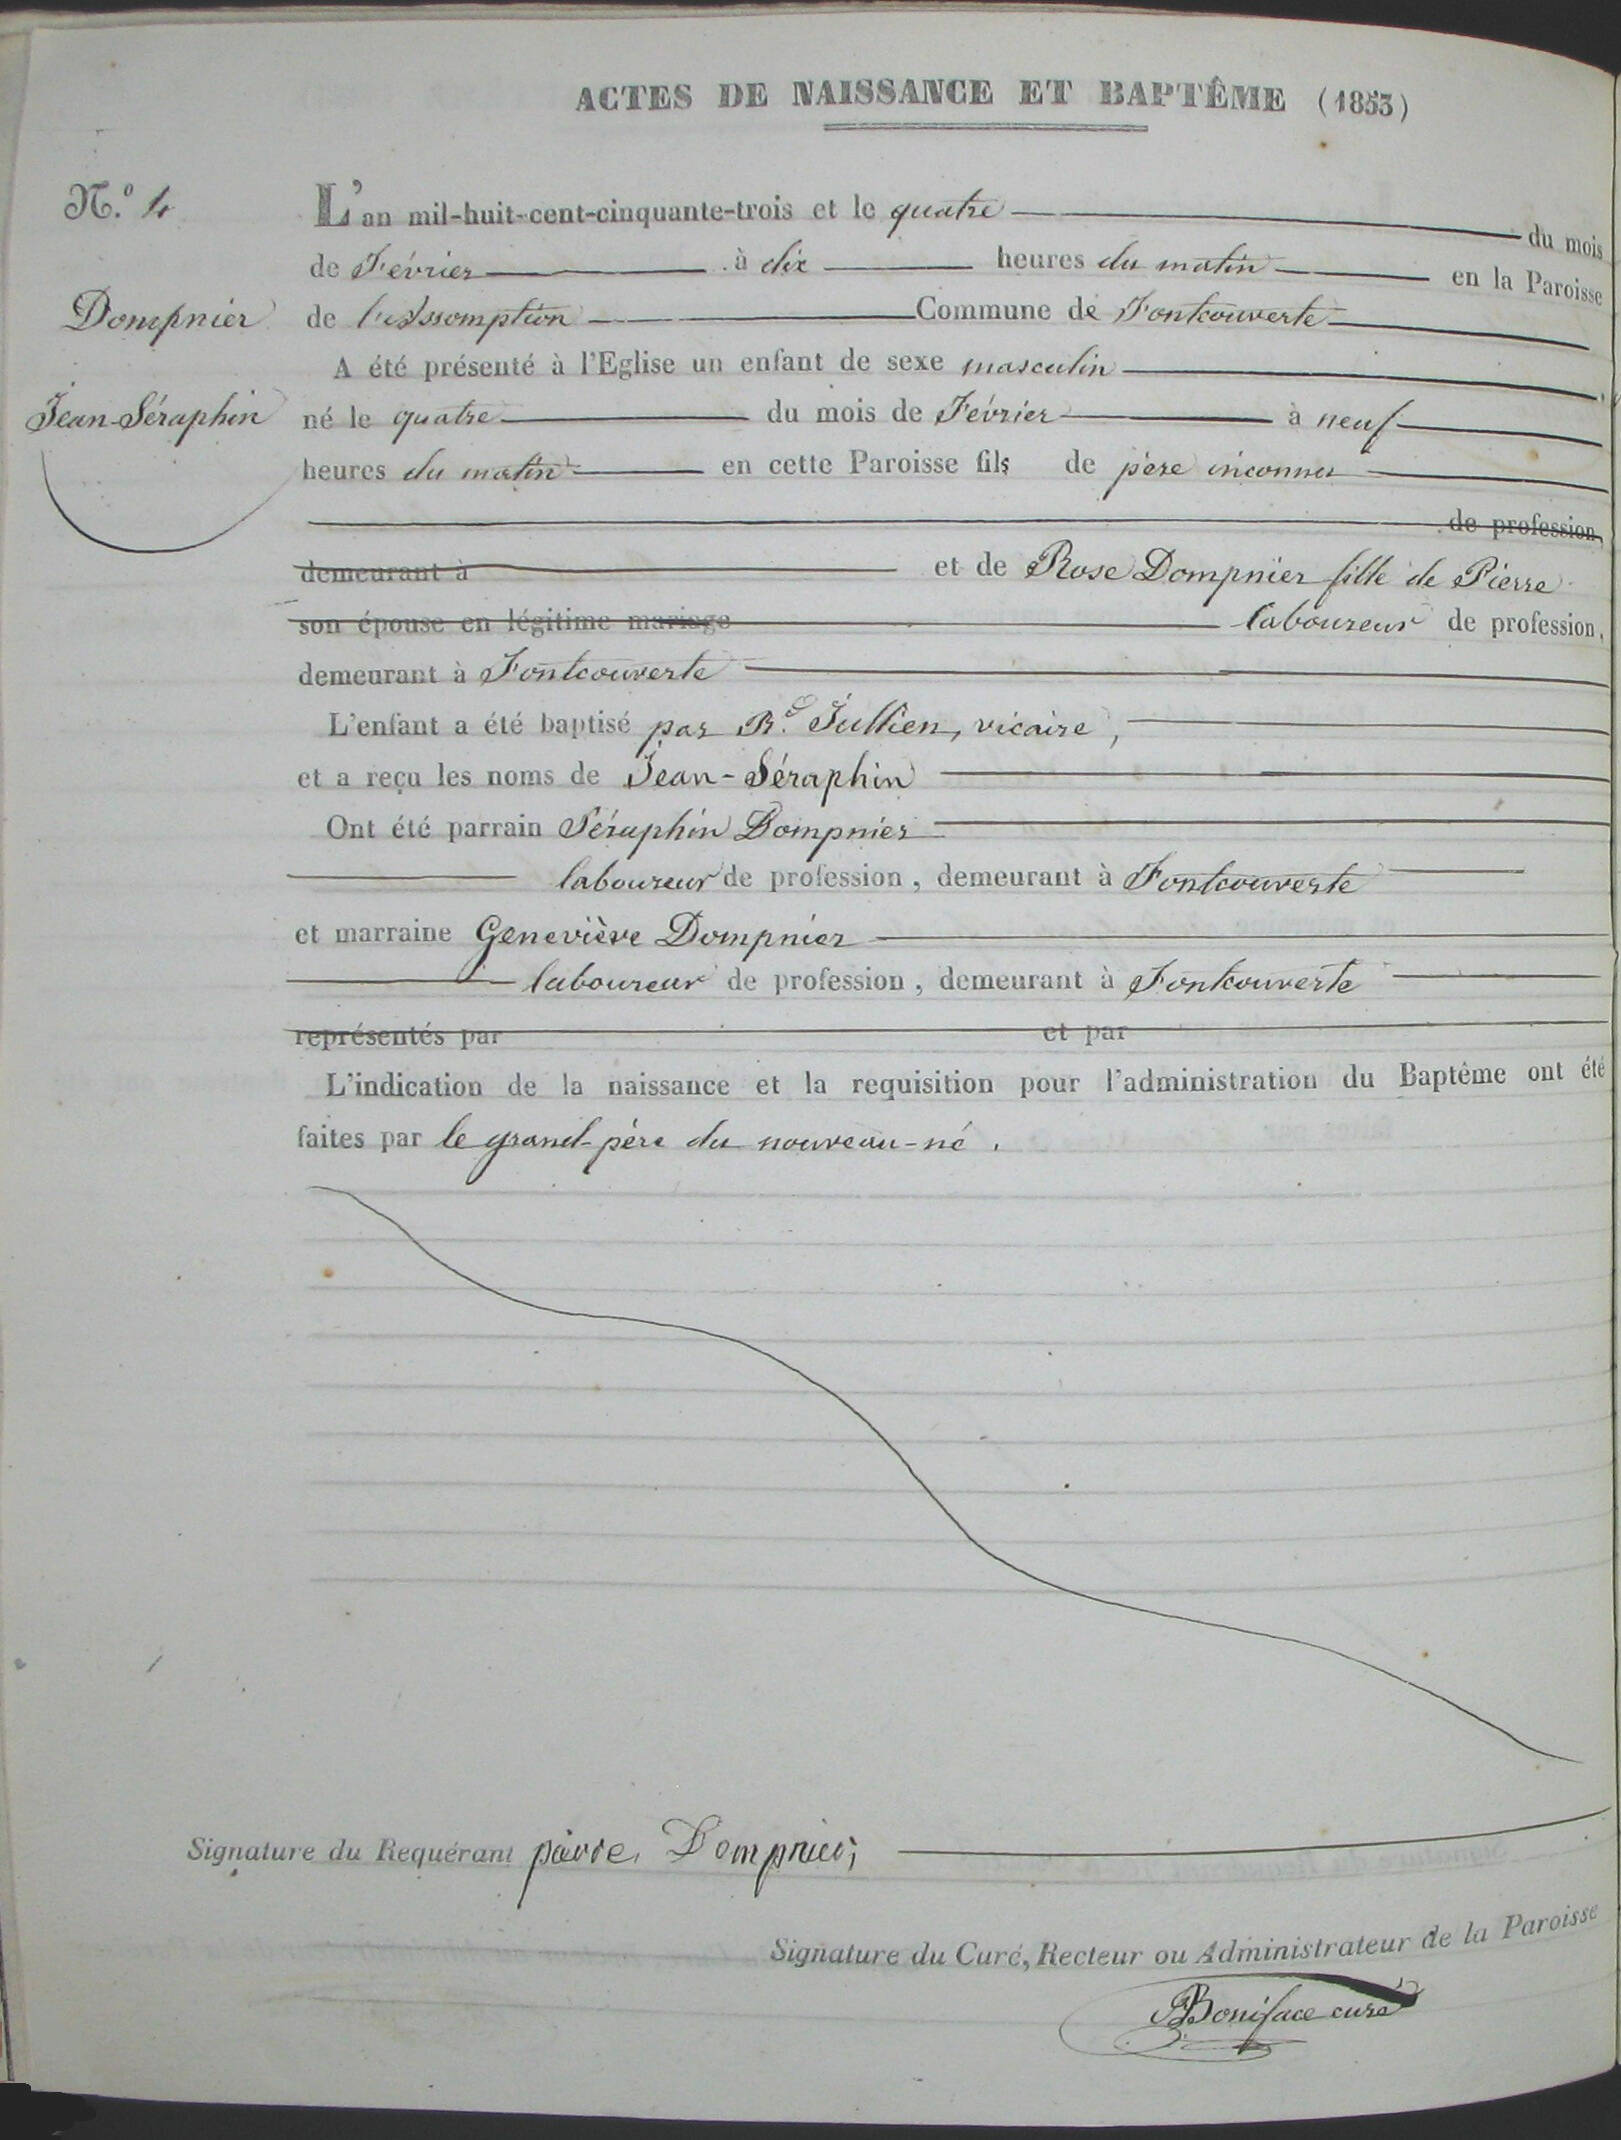 ACTES DE NAISSANCE ET BAPTÊME (1853)
N.º 4
L'an mil-huit-cent-cinquante-trois et le quatre du mois
de Février à dix heures du matin en la Paroisse
Dompnier
de l'Assomption Commune de Fontcouverte
A été présenté à l'Eglise un enfant de sexe masculin
Jean-Séraphin
né le quatre du mois de Février à neuf
heures du matin en cette Paroisse fils de père inconnu
de profession,
demeurant à et de Rose Dompnier fille de Pierre
son épouse en légitime mariage laboureur de profession,
demeurant à Fontcouverte
L'enfant a été baptisé par Rd. Jullien, vicaire,
et a reçu les noms de Jean-Séraphin
Ont été parrain Séraphin Dompnier
laboureur de profession, demeurant à Fontcouverte
et marraine Geneviève Dompnier
laboureur de profession, demeurant à Fontcouverte
représentés par et par
L'indication de la naissance et la requisition pour l'administration du Baptême ont été
faites par le grand-père du nouveau-né.
Signature du Requérant Dompnier
Signature du Curé, Recteur ou Administrateur de la Paroisse
Boniface curé